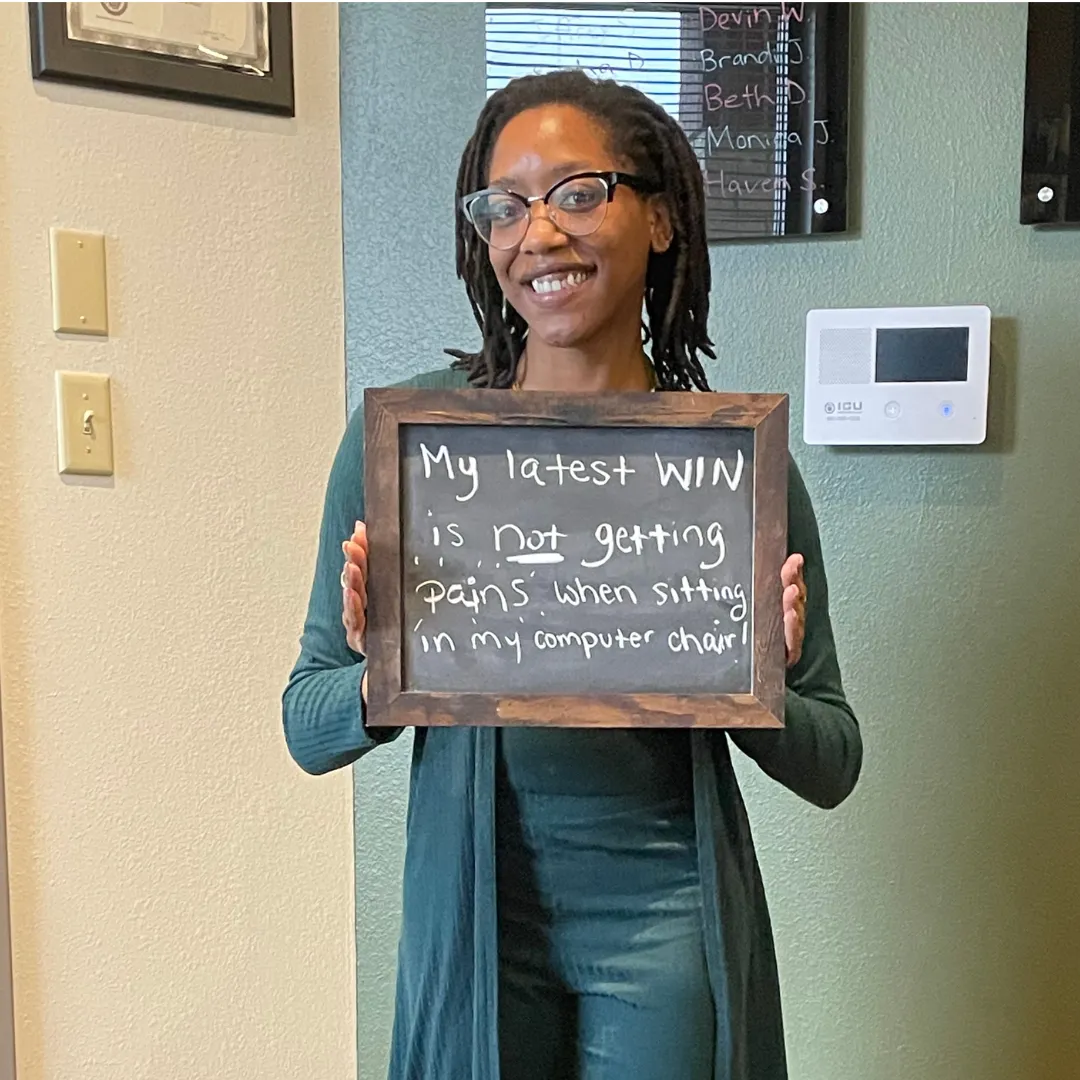 Devin W.
Brandi J.
Beth D.
Monica J.
Haven S.
ICU
My latest WIN
is not getting
pains when sitting
in my computer chair!